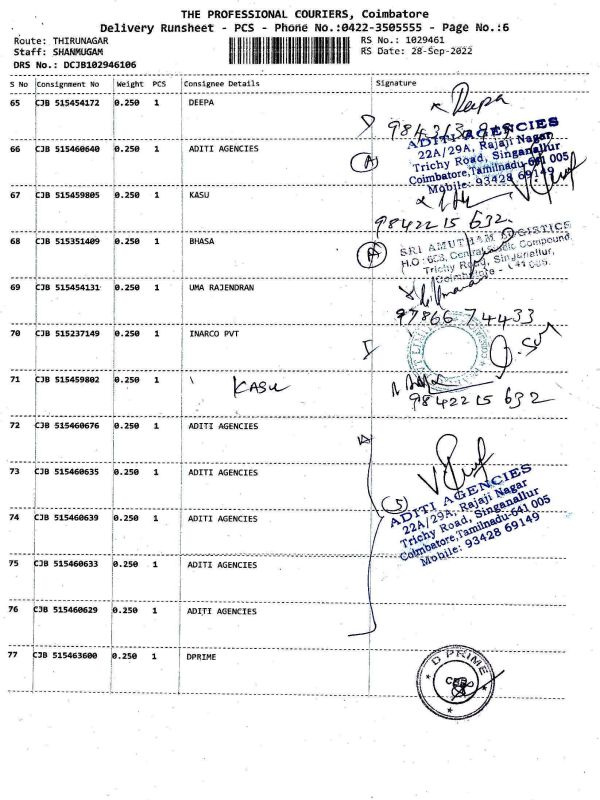 THE PROFESSIONAL COURIERS, Coimbatore
Delivery Runsheet - PCS - Phone No.:0422-3505555 - Page No.:6
Route: THIRUNAGAR
RS No.: 1029461
Staff: SHANMUGAM
RS Date: 28-Sep-2022
DRS No.: DCJB102946106
S No Consignment No Weight PCS Consignee Details Signature
65 CJB 515454172 0.250 1 DEEPA
Deepa
66 CJB 515460640 0.250 1 ADITI AGENCIES
ADITI AGENCIES
22A/29A, Rajaji Nagar
Trichy Road, Singanallur
Coimbatore,Tamilnadu-641 005
Mobile: 93428 69149
67 CJB 515459805 0.250 1 KASU
9842215 632
68 CJB 515351409 0.250 1 BHASA
SRI AMUTHAM LOGISTICS
Compound,
Trichy Road, Singanallur,
69 CJB 515454131 0.250 1 UMA RAJENDRAN
97866 74433
70 CJB 515237149 0.250 1 INARCO PVT
71 CJB 515459802 0.250 1 KASU
9842215 632
72 CJB 515460676 0.250 1 ADITI AGENCIES
73 CJB 515460635 0.250 1 ADITI AGENCIES
5
ADITI AGENCIES
22A/29A, Rajaji Nagar
Trichy Road, Singanallur
Coimbatore,Tamilnadu-641 005
Mobile: 93428 69149
74 CJB 515460639 0.250 1 ADITI AGENCIES
75 CJB 515460633 0.250 1 ADITI AGENCIES
76 CJB 515460629 0.250 1 ADITI AGENCIES
77 CJB 515463600 0.250 1 DPRIME
D PRIME